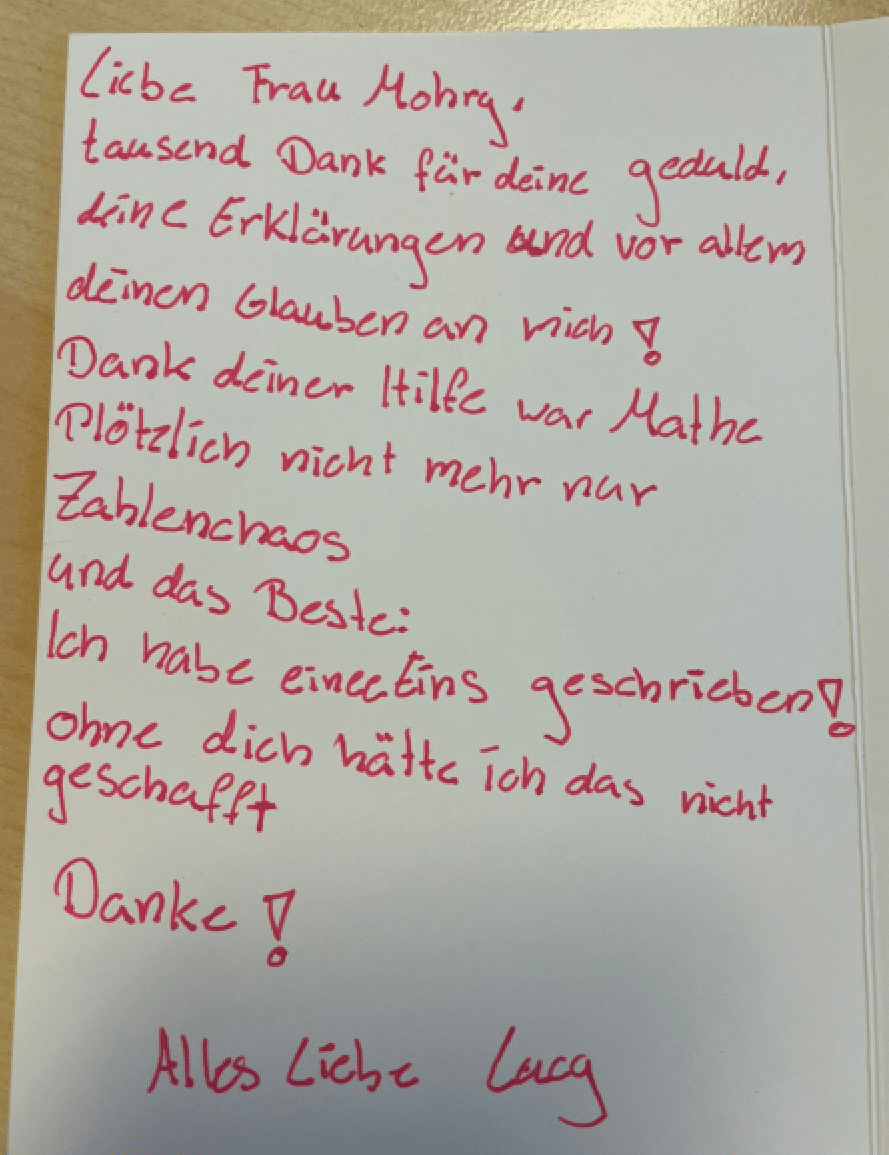 Liebe Frau Mohry,
tausend Dank für deine geduld,
deine Erklärungen und vor allem
deinen Glauben an mich!
Dank deiner Hilfe war Mathe
Plötzlich nicht mehr nur
Zahlenchaos
und das Beste:
Ich habe eine Eins geschrieben!
ohne dich hätte ich das nicht
geschafft
Danke!
Alles Liebe Lucy